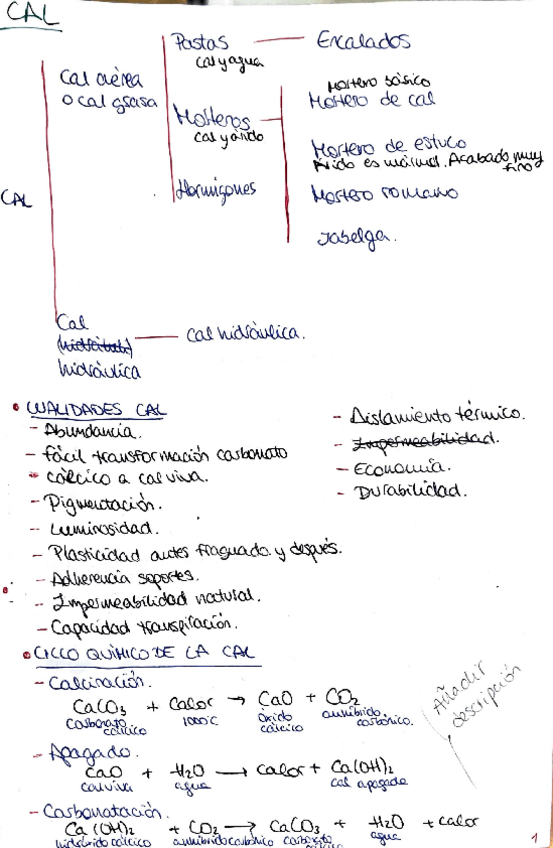 CAL
Pastas
cal y agua
Encalados
Cal aérea
o cal grasa
Mortero básico
Mortero de cal
Morteros
cal y árido
Mortero de estuco
Árido es mármol. Acabado muy
fino
Hormigones
Mortero romano
CAL
Jabelga.
Cal
(hidráulica)
hidráulica
cal hidráulica.
CUALIDADES CAL
- Abundancia.
- fácil transformación carbonato
- cálcico a cal viva.
- Pigmentación.
- Luminosidad.
- Plasticidad antes fraguado y después.
- Adherencia soportes.
- Impermeabilidad natural.
- Capacidad transpiración.
- Aislamiento térmico.
- Impermeabilidad.
- Economía.
- Durabilidad.
CICLO QUÍMICO DE LA CAL
- Calcinación.
CaCO₃ + Calor → CaO + CO₂
carbonato cálcico 1000°C óxido cálcico anhíbrido carbónico.
Añadir
descripción
- Apagado.
CaO + H₂O → calor + Ca(OH)₂
cal viva agua cal apagada
- Carbonatación.
Ca(OH)₂ + CO₂ → CaCO₃ + H₂O + calor
hidróbido cálcico anhíbrido carbónico carbonato cálcico agua
1